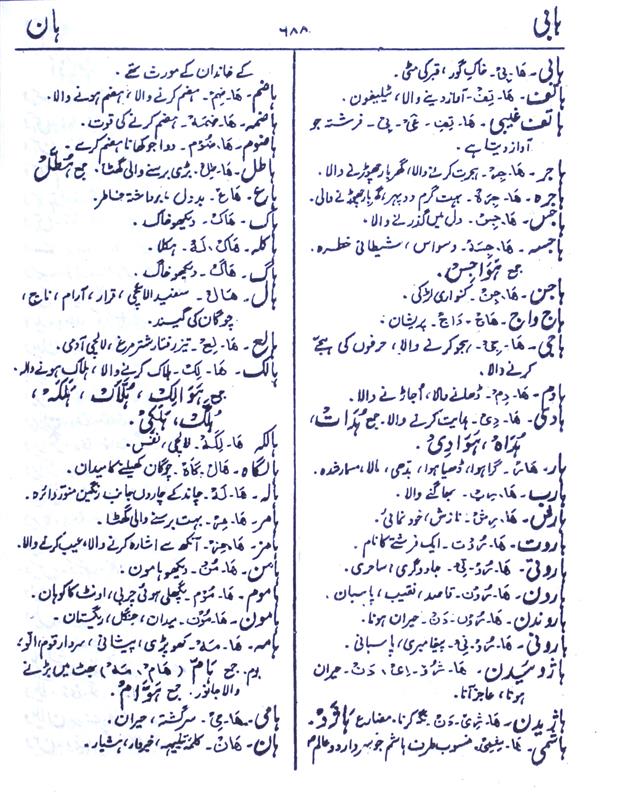 ہابی
۶۸۸
ہان
ہابی۔ ھَا۔ بِیْ۔ خاکِ گور، قبر کی مٹی۔
ہاتف۔ ھَا۔ تِفْ۔ آواز دینے والا، ٹیلیفون۔
ہاتف غیبی۔ ھَا۔ تِفِ۔ غَیْ۔ بِیْ۔ فرشتہ جو
آواز دیتا ہے۔
ہاجر۔ ھَا۔ جِرْ۔ ہجرت کرنے والا، گھر بار چھوڑنے والا۔
ہاجرہ۔ ھَا۔ جِرَہْ۔ بہت گرم دوپہر، گھر بار چھوڑنے والی۔
ہاجس۔ ھَا۔ جِسْ۔ دل میں گذرنے والا۔
ہاجسہ۔ ھَا۔ جِسَہْ۔ وسواس، شیطانی خطرہ۔
جمع ہَوَاجِسْ۔
ہاجن۔ ھَا۔ جِنْ۔ کنواری لڑکی۔
ہاج واج۔ ھَاجْ۔ وَاجْ۔ پریشان۔
ہاجی۔ ھَا۔ جِیْ۔ ہجو کرنے والا، حرفوں کی ہجے
کرنے والا۔
ہادم۔ ھَا۔ دِمْ۔ ڈھانے والا، اُجاڑنے والا۔
ہادی۔ ھَا۔ دِیْ۔ ہدایت کرنے والا۔ جمع ہُدَات،
ہُدَاہْ، ہَوَادِیْ۔
ہار۔ ھَارْ۔ گرا ہوا، ڈھیا ہوا، بدھی، مالا، مسمار شدہ۔
ہارب۔ ھَا۔ رِبْ۔ بھاگنے والا۔
ھَا۔ نازش، خود نمائی۔
ہاروت۔ ھَا۔ رُوْتْ۔ ایک فرشتے کا نام۔
ہاروتی۔ ھَا۔ رُوْ۔ تِیْ۔ جادوگری، ساحری۔
ہارون۔ ھَا۔ رُوْنْ۔ قاصد، نقیب، پاسبان۔
ہاروندن۔ ھَا۔ دَنْ۔ حیران ہونا۔
ہارونی۔ ھَا۔ رُوْ۔ نِیْ۔ پیغامبری، پاسبانی۔
ہاژوئیدن۔ ھَا۔ ژُوْ۔ دَنْ۔ حیران
ہونا، عاجز آنا۔
ھَا۔ دَنْ۔ کرنا۔ مضارع
ہاشمی۔ ھَا۔ منسوب طرف ہاشم جو سردار دو عالم
کے خاندان کے مورث تھے۔
ہاضم۔ ھَا۔ ضِمْ۔ ہضم کرنے والا، ہضم ہونے والا۔
ہاضمہ۔ ھَا۔ ضِمَہْ۔ ہضم کرنے کی قوت۔
ہاضوم۔ ھَا۔ ضُوْمْ۔ دوا جو کھانا ہضم کرے۔
ہاطل۔ ھَا۔ طِلْ۔ بڑی برسنے والی گھٹا۔ جمع ہُطَّلْ
ہاع۔ ھَاعْ۔ بد دل، برداشتہ خاطر۔
ہاک۔ ھَاکْ۔ دیکھو خاک۔
ہاکلہ۔ ھَاکْ۔ لَہْ۔ ہکلا۔
ہاگ۔ ھَاگْ۔ دیکھو خاگ۔
ہال۔ ھَالْ۔ سفید الائچی، قرار، آرام، ناچ،
چوگان کی گیند۔
ہالع۔ ھَا۔ لِعْ۔ تیز رفتار شتر مرغ، لالچی آدمی۔
ہالک۔ ھَا۔ لِکْ۔ ہلاک کرنے والا، ہلاک ہونے والا۔
جمع ہَوَالِکْ، ہُلَّاکْ، ہَلَکَہْ،
ہُلَّکْ، ہَلْکٰی۔
ہالکہ۔ ھَا۔ لِکَہْ۔ لالچی، نفس۔
ہالگاہ۔ ھَالْ۔ گَاہْ۔ چوگان کھیلنے کا میدان۔
ہالہ۔ ھَا۔ لَہْ۔ چاند کے چاروں جانب رنگین منور دائرہ۔
ہامر۔ ھَا۔ مِرْ۔ بہت برسنے والی گھٹا۔
ہامز۔ ھَا۔ مِزْ۔ آنکھ سے اشارہ کرنے والا، عیب کرنے والا۔
ہامن۔ ھَا۔ مُنْ۔ دیکھو ہامون۔
ہاموم۔ ھَا۔ مُوْمْ۔ پگھلی ہوئی چربی، اونٹ کا کوہان۔
ہامون۔ ھَا۔ مُوْنْ۔ میدان، جنگل، ریگستان۔
ہامہ۔ ھَا۔ مَہْ۔ کھوپڑی، پیشانی، سردار قوم، الّو،
بوم۔ جمع ہَامْ (ھَامْ، مَہْ) بھٹ میں بڑنے
والا جانور۔ جمع ہَوَامْ۔
ہامی۔ ھَا۔ مِیْ۔ سرگشتہ، حیران۔
ہان۔ ھَانْ۔ کلمۂ تنبیہہ، خبردار، ہشیار۔